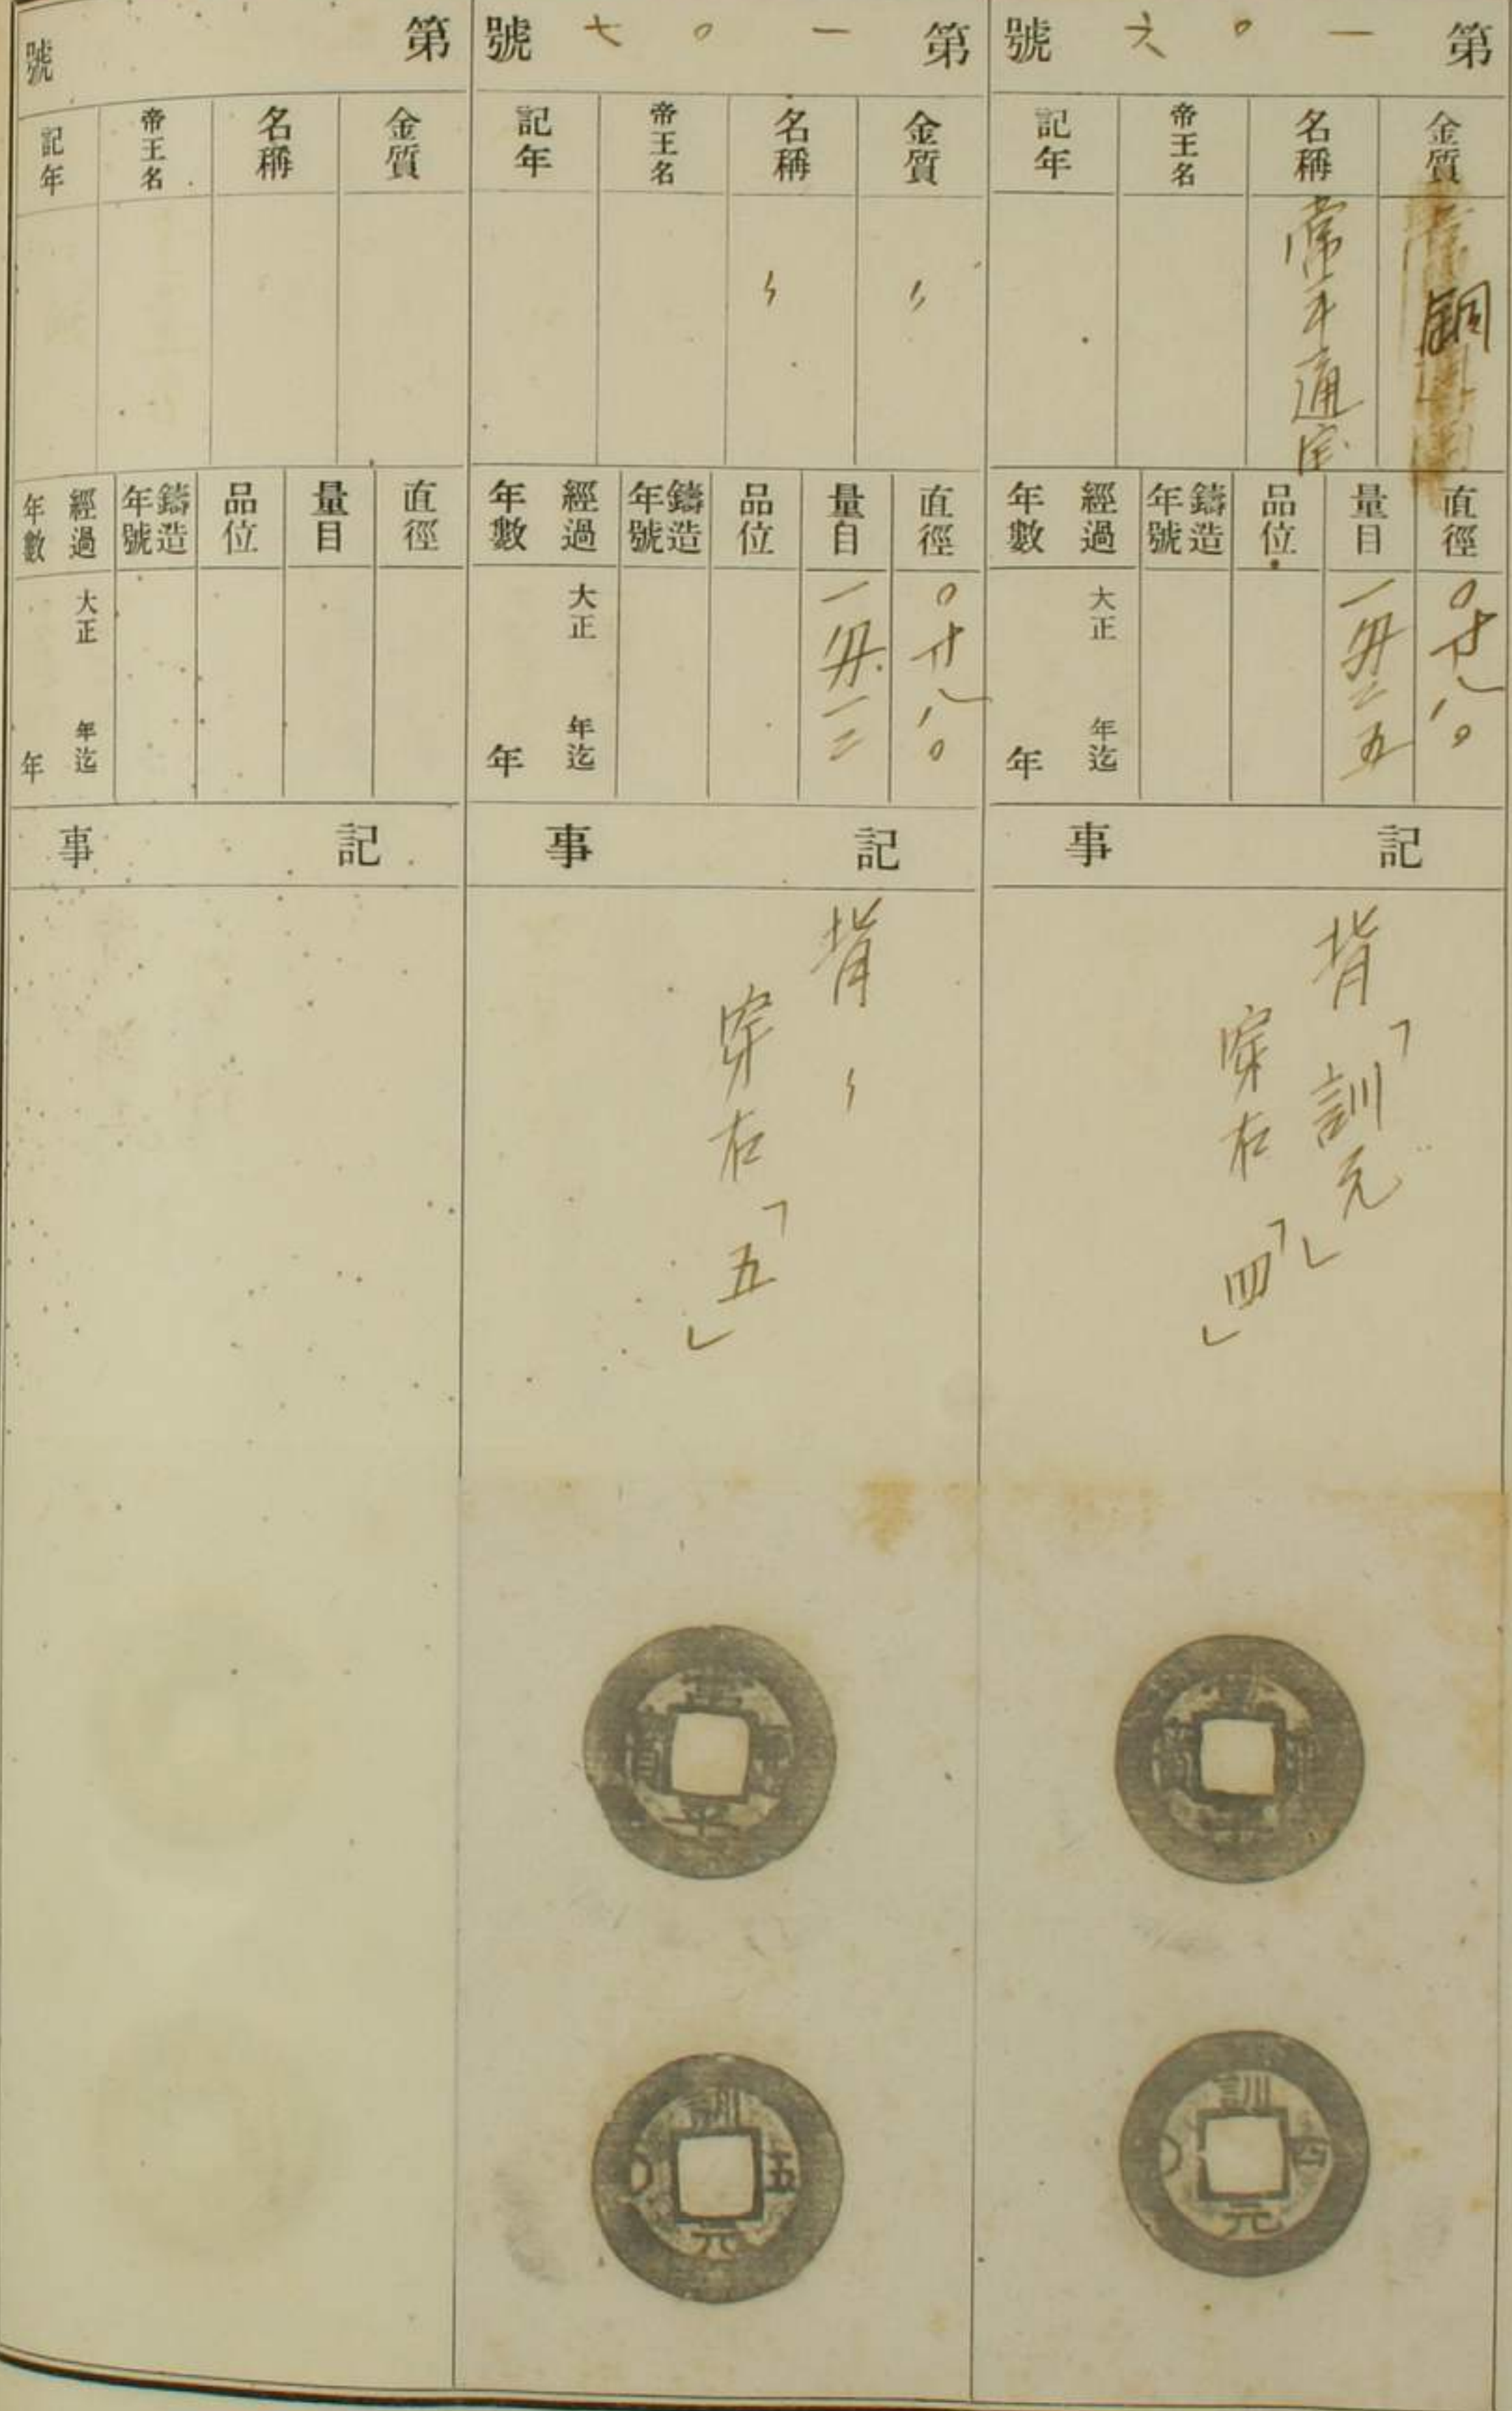 第一〇六號
金質
銅
名稱
常平通宝
帝王名
記年
直徑
〇寸八〇
量目
一匁二五
品位
鑄造年號
經過年數
大正 年迄
年
記事
背「訓元」
穿右「四」
常平通寶
訓元四
第一〇七號
金質
〃
名稱
〃
帝王名
記年
直徑
〇寸八〇
量目
一匁一二
品位
鑄造年號
經過年數
大正 年迄
年
記事
背〃
穿右「五」
常平通寶
訓元五
第 號
金質
名稱
帝王名
記年
直徑
量目
品位
鑄造年號
經過年數
大正 年迄
年
記事